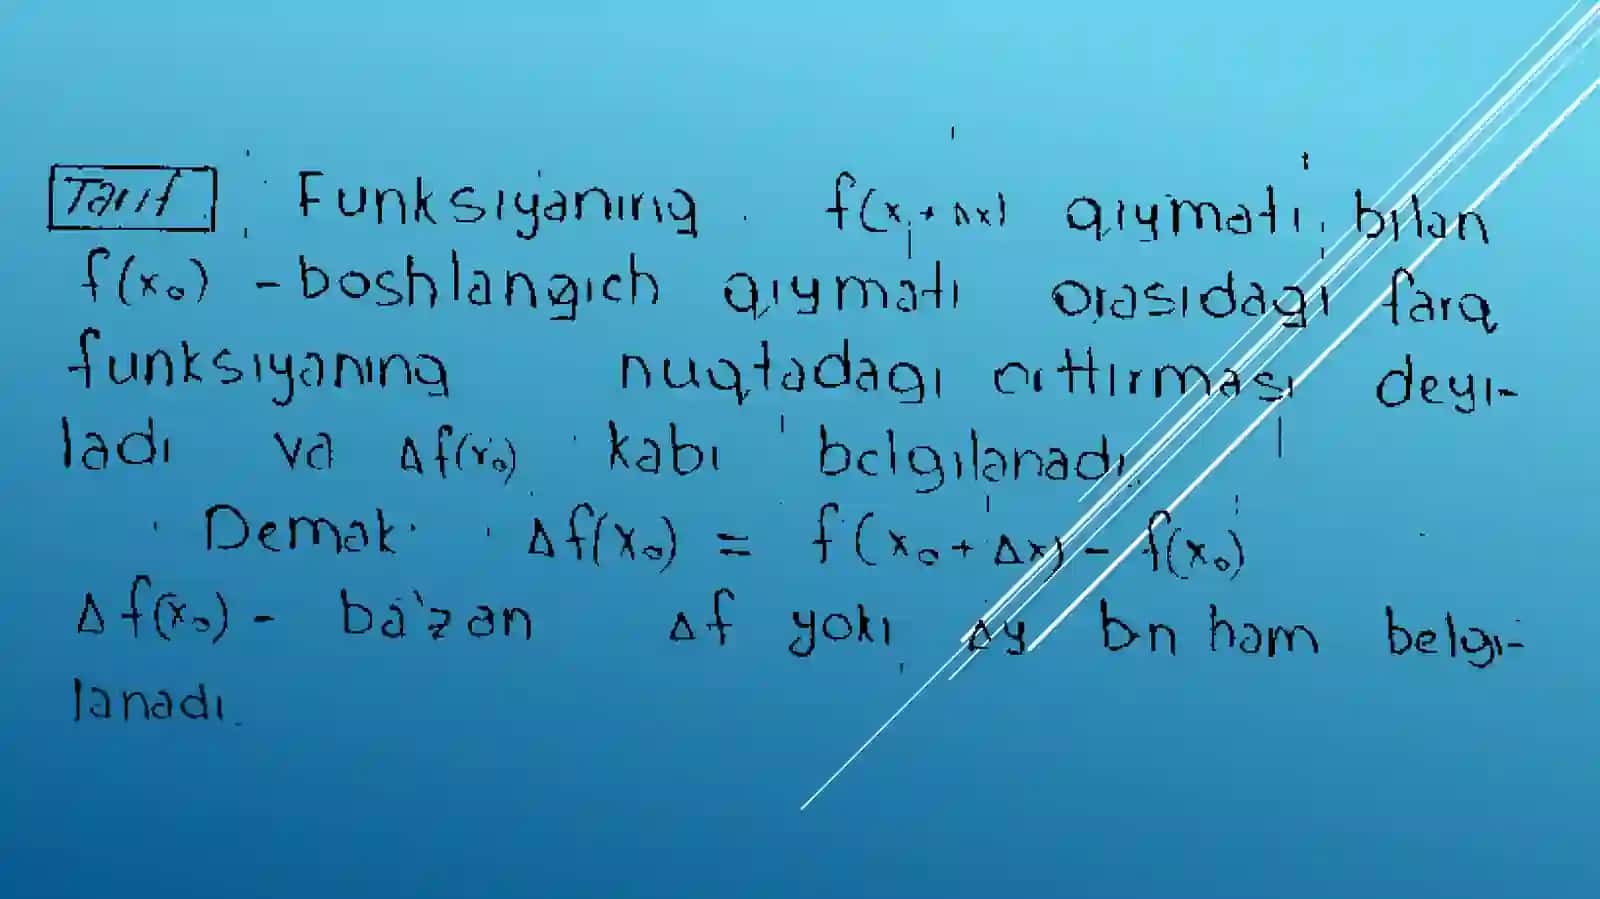 Tarif Funksiyaning f(x₀ + Δx) qiymati bilan
f(x₀) - boshlangich qiymati orasidagi farq
funksiyaning nuqtadagi orttirmasi deyi-
ladi va Δf(x₀) kabi belgilanadi.
Demak Δf(x₀) = f(x₀ + Δx) - f(x₀)
Δf(x₀) - ba'zan Δf yoki Δy bn ham belgi-
lanadi.